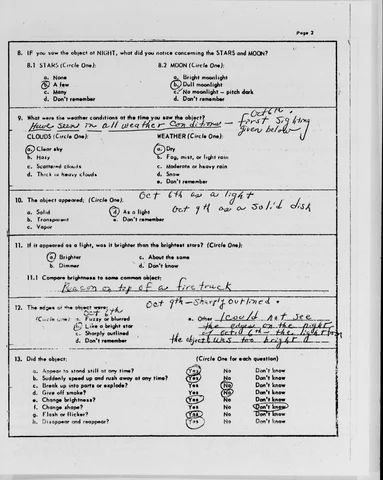 Page 2
8. IF you saw the object at NIGHT, what did you notice concerning the STARS and MOON?
8.1 STARS (Circle One): 8.2 MOON (Circle One):
a. None a. Bright moonlight
b. A few b. Dull moonlight
c. Many c. No moonlight – pitch dark
d. Don't remember d. Don't remember
Oct 6th -
9. What were the weather conditions at the time you saw the object? first sighting
Have seen in all weather conditions – given below
CLOUDS (Circle One): WEATHER (Circle One):
a. Clear sky a. Dry
b. Hazy b. Fog, mist, or light rain
c. Scattered clouds c. Moderate or heavy rain
d. Thick or heavy clouds d. Snow
e. Don't remember
Oct 6th as a light
10. The object appeared; (Circle One): Oct 9th as a solid disk
a. Solid d. As a light
b. Transparent e. Don't remember
c. Vapor
11. If it appeared as a light, was it brighter than the brightest stars? (Circle One):
a. Brighter c. About the same
b. Dimmer d. Don't know
11.1 Compare brightness to some common object:
Beacon on top of a firetruck
Oct 9th – Sharply outlined.
12. The edges of the object were:
Oct 6th
(Circle One): a. Fuzzy or blurred e. Other I could not see
b. Like a bright star the edges on the night
c. Sharply outlined of Oct 6th – the light from
d. Don't remember the object was too bright
13. Did the object: (Circle One for each question)
a. Appear to stand still at any time? Yes No Don't know
b. Suddenly speed up and rush away at any time? Yes No Don't know
c. Break up into parts or explode? Yes No Don't know
d. Give off smoke? Yes No Don't know
e. Change brightness? Yes No Don't know
f. Change shape? Yes No Don't know
g. Flash or flicker? Yes No Don't know
h. Disappear and reappear? Yes No Don't know